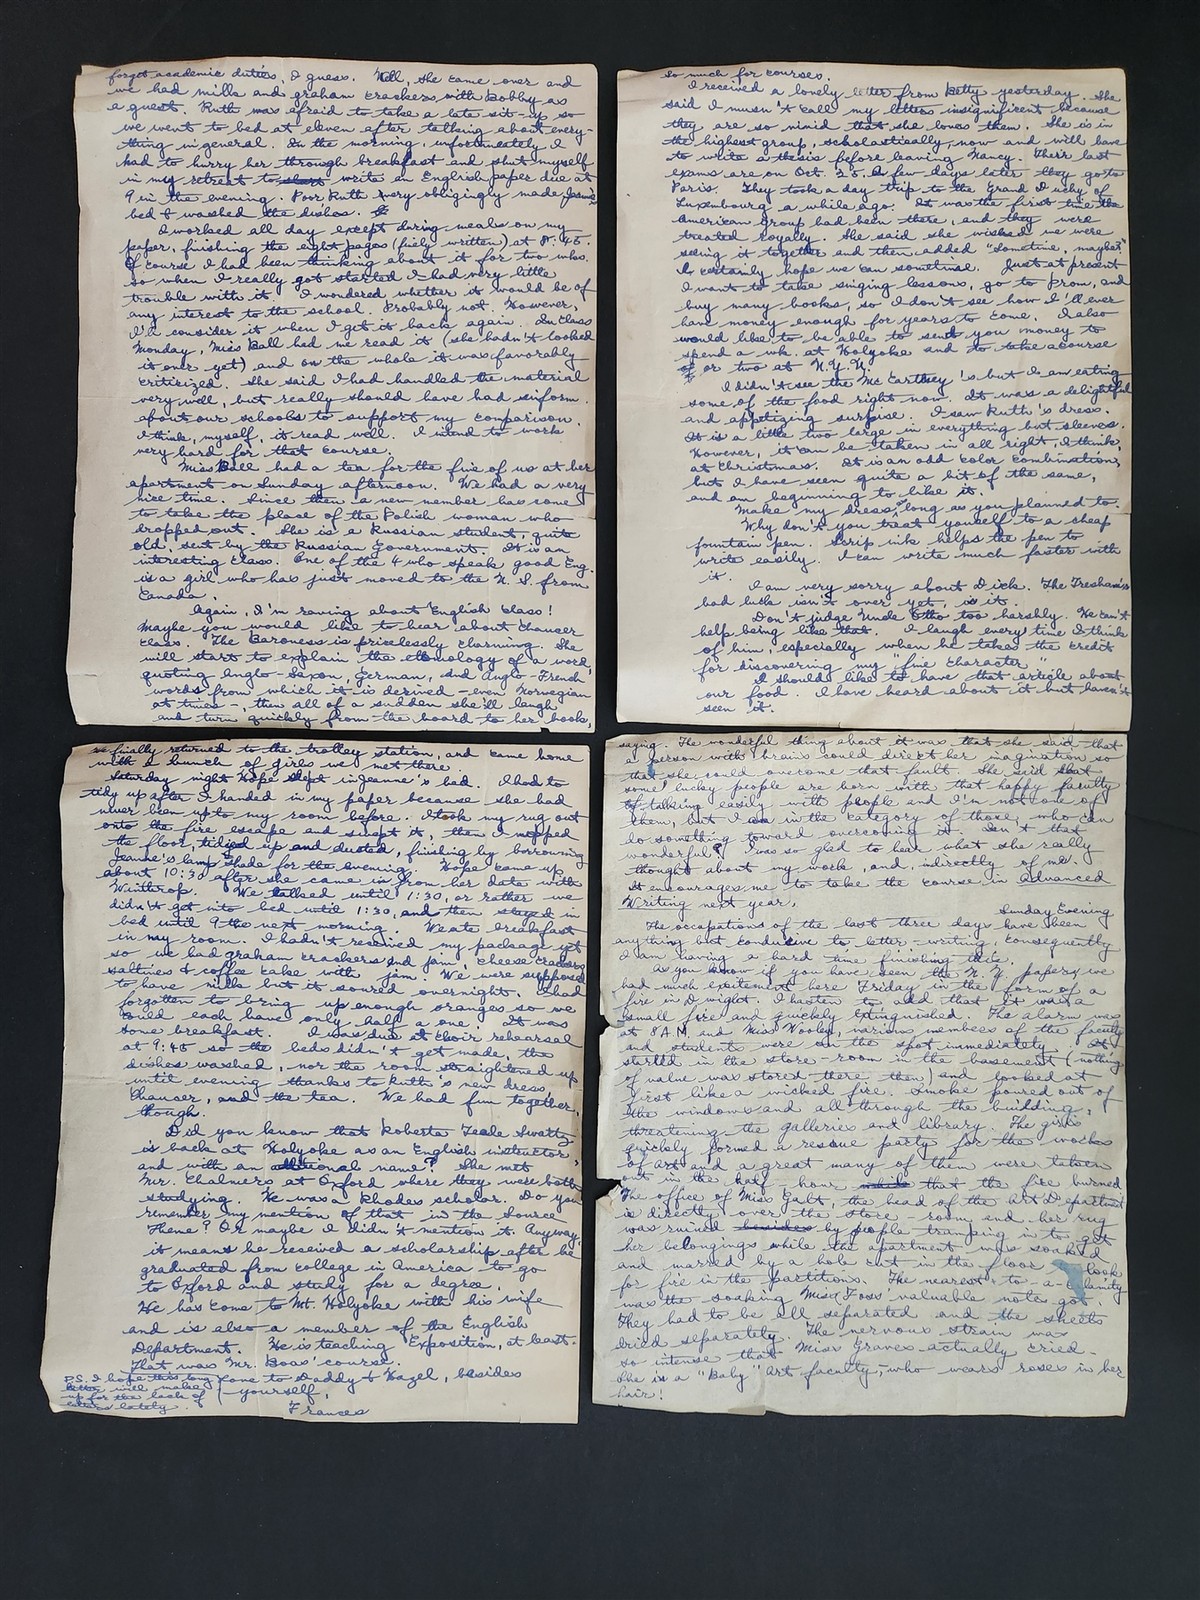 forget academic duties, I guess. Well, she came over and
we had milk and graham crackers with Bobby as
a guest. Ruth was afraid to take a late sit-up so
we went to bed at eleven after talking about every-
thing in general. In the morning, unfortunately I
had to hurry her through breakfast and shut myself
in my retreat to start write an English paper due at
9 in the evening. Poor Ruth very obligingly made
bed & washed the dishes.
I worked all day except during meals on my
paper, finishing the eight pages (finely written) at 8:45.
Of course I had been thinking about it for two wks.
so when I really got started I had very little
trouble with it. I wondered whether it would be of
any interest to the school. Probably not. However,
I'll consider it when I get it back again. In class
Monday, Miss Ball had me read it (she hadn't looked
it over yet) and on the whole it was favorably
criticized. She said I had handled the material
very well, but really should have had inform.
about our schools to support my comparison.
I think, myself, it read well. I intend to work
very hard for that course.
Miss Ball had a tea for the five of us at her
apartment on Sunday afternoon. We had a very
nice time. Since then a new member has come
to take the place of the Polish woman who
dropped out. She is a Russian student, quite
old, sent by the Russian Government. It is an
interesting class. One of the 4 who speak good Eng.
is a girl who has just moved to the U. S. from
Canada.
Again, I'm raving about English class!
Maybe you would like to hear about Chaucer
class. The Baroness is pricelessly charming. She
will start to explain the etomology of a word,
quoting Anglo-Saxon, German, and Anglo-French
words from which it is derived - even Norwegian
at times -, then all of a sudden she'll laugh
and turn quickly from the board to her book,
so much for courses.
I received a lonely letter from Betty yesterday. She
said I musn't call my letters insignificent because
they are so nimid that she loves them. She is in
the highest group, scholastically, now and will have
to write a thesis before leaving Nancy. Their last
exams are on Oct. 25. A few days later they go to
Paris. They took a day trip to the Grand Duchy of
Luxembourg a while ago. It was the first time the
American group had been there, and they were
treated royally. She said she wished we were
seeing it together and then added "sometime, maybe."
I certainly hope we can sometime. Just at present
I want to take singing lessons, go to Prom, and
buy many books, so I don't see how I'll ever
have money enough for years to come. I also
would like to be able to send you money to
spend a wk. at Holyoke and to take a course
or two at N.Y.U.
I didn't see the McCarthey's but I am eating
some of the food right now. It was a delightful
and appetizing surprise. I saw Ruth's dress.
It is a little two large in everything but sleeves.
However, it can be taken in all right, I think,
at Christmas. It is an odd color combination,
but I have seen quite a bit of the same,
and am beginning to like it.
Make my dress as long as you planned to.
Why don't you treat youself to a cheap
fountain pen. Scrip ink helps the pen to
write easily. I can write much faster with
it.
I am very sorry about Dick. The
bad luck isn't over yet, is it.
Don't judge Uncle Otto too harshly. He can't
help being like that. I laugh every time I think
of him, especially when he takes the credit
for discovering my "fine character"
I should like to have that article about
our food. I have heard about it but haven't
seen it.
we finally returned to the trolley station, and came home
with a bunch of girls we met there.
Saturday night Hope slept in Jeanne's bed. I had to
tidy up after I handed in my paper because she had
never been up to my room before. I took my rug out
onto the fire escape and swept it, then I mopped
the floor, tidied up and dusted, finishing by borrowing
Jeanne's lamp shade for the evening. Hope came up
about 10:30 after she came in from her date with
Winthrop. We talked until 1:30, or rather we
didn't get into bed until 1:30, and then stayed in
bed until 9 the next morning. We ate breakfast
in my room. I hadn't received my package yet
so we had graham crackers and jam, cheese crackers
saltines & coffee cake with jam. We were supposed
to have milk but it soured overnight. I had
forgotten to bring up enough oranges so we
could each have only half a one. It was
some breakfast. I was due at choir rehearsal
at 9:45 so the beds didn't get made, the
dishes washed, nor the room straightened up
until evening thanks to Ruth's new dress,
Chaucer, and the tea. We had fun together,
though.
Did you know that Roberta Teale Swartz
is back at Holyoke as an English instructor,
and with an additional name? She met
Mr. Chalmers at Oxford where they were both
studying. He was a Rhodes scholar. Do you
remember my mention of that in the Source
Theme? Or maybe I didn't mention it. Anyway,
it means he received a scholarship after he
graduated from college in America to go
to Oxford and study for a degree.
He has come to Mt. Holyoke with his wife
and is also a member of the English
Department. He is teaching Exposition, at least.
That was Mr. Boas' course.
Love to Daddy & Hazel, besides
yourself,
Frances
P.S. I hope this long
letter will make
up for the lack of
letters lately.
saying. The wonderful thing about it was that she said that
a person with brains could direct her imagination so
that she could overcome that fault. She said that
some lucky people are born with that happy faculty
of talking easily with people and I'm not one of
them, but I am in the category of those who can
do something toward overcoming it. Isn't that
wonderful? I was so glad to hear what she really
thought about my work, and, indirectly of me.
It encourages me to take the course in Advanced
Writing next year.
Sunday Evening
The occupations of the last three days have been
anything but conducive to letter-writing, consequently
I am having a hard time finishing this.
As you know if you have seen the N. Y. papers, we
had much excitement here Friday in the form of a
fire in Dwight. I hasten to add that it was a
small fire and quickly extinguished. The alarm was
at 8 A.M. and Miss Wooley, various members of the faculty
and students were on the spot immediately. It
started in the store-room in the basement (nothing
of value was stored there then) and looked at
first like a wicked fire. Smoke poured out of
the windows and all through the building,
threatening the galleries and library. The girls
quickly formed a rescue party for the works
of art and a great many of them were taken
out in the half-hour while that the fire burned
The office of Miss Galt, the head of the Art Department
is directly over the store-room, and her rug
was ruined besides by people tramping in to get
her belongings while the apartment was soaked
and marred by a hole cut in the floor to look
for fire in the partitions. The nearest-to-a-calamity
was the soaking Miss Foss' valuable notes got.
They had to be all separated and the sheets
dried separately. The nervous strain was
so intense that Miss Graves actually cried -
She is a "Baby" Art faculty, who wears roses in her
hair!